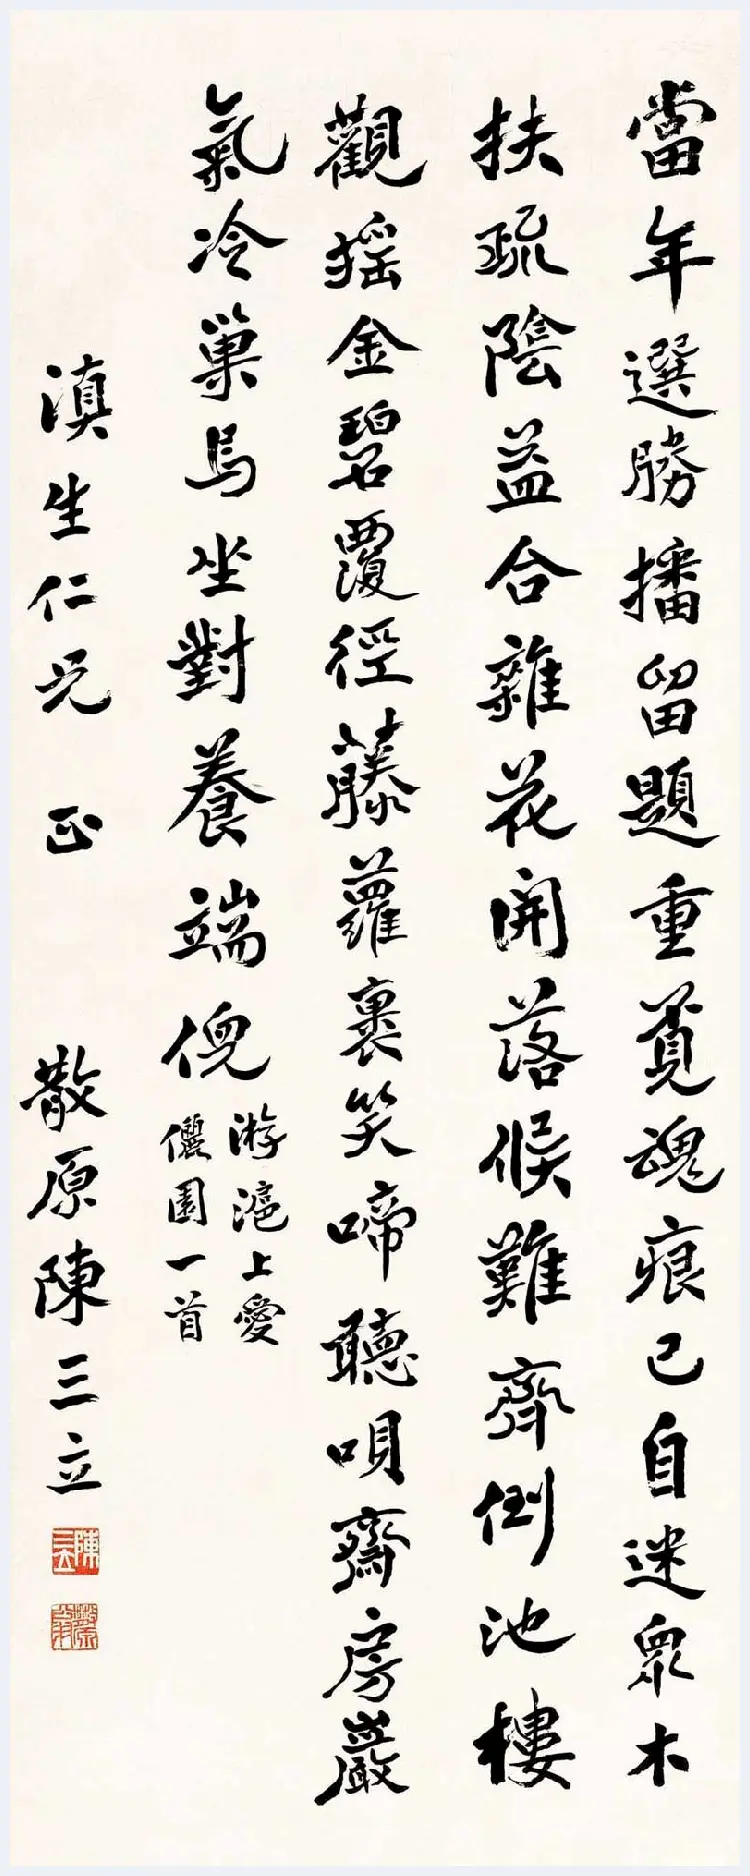 當年選勝播留題重覓魂痕已自迷眾木
扶疏陰益合雜花開落候難齊倒池樓
觀搖金碧覆徑藤蘿裹笑啼聽唄齋房嚴
氣冷巢烏坐對養端倪
游滬上愛
儷園一首
滇生仁兄 正 散原陳三立
陳三立
散原